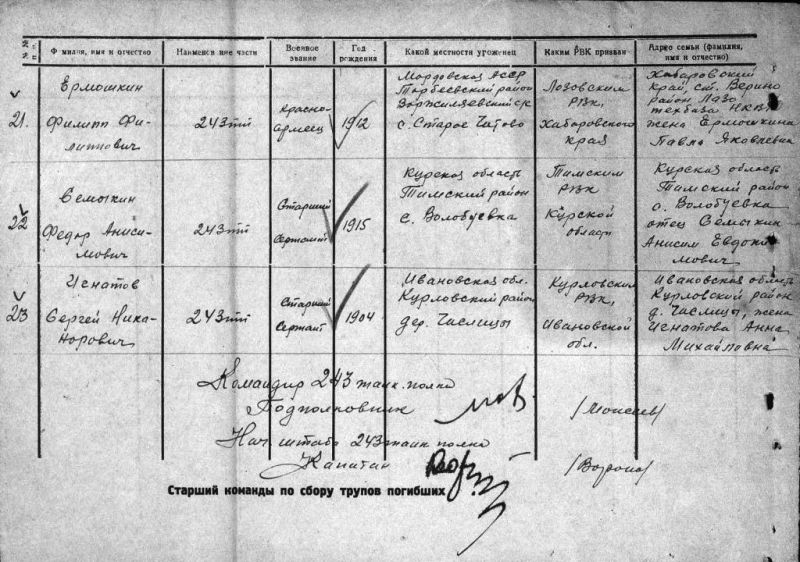 №№ п. п. Фамилия, имя и отчество Наименование части Военное звание Год рождения Какой местности уроженец Каким РВК призван Адрес семьи (фамилия, имя и отчество)
21. Ермошкин
Филипп Фи-
липпович
243тп
Красно-
армеец
1912
Мордовская АССР
Торбеевский район
с/с
с. Старое
Лозовским
РВК,
Хабаровского
края
Хабаровский
край, ст. Верино
район Лазо
техбаза НКВД
жена Ермошкина
Павла Яковлевна
22 Семыкин
Федор Аниси-
мович
243тп
Старший
Сержант
1915
Курская область
Тимский район
с. Волобуевка
Тимским
РВК
Курской
области
Курская область
Тимский район
с. Волобуевка
отец Семыкин
Анисим Евдоки
мович
23 Игнатов
Сергей Ника-
норович
243тп
Старший
Сержант
1904
Ивановская обл.
Курловский район
дер. Числицы
Курловским
РВК,
Ивановской
обл.
Ивановская область
Курловский район
д. Числицы, жена
Игнатова Анна
Михайловна
Командир 243 танк. полка
Подполковник /Моисеев/
Нач штаба 243 танк полка
Капитан
Старший команды по сбору трупов погибших